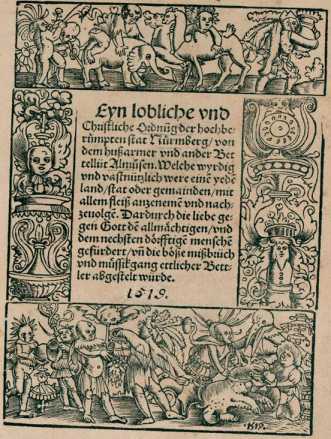 Eyn lobliche vnd
Christliche Ordnūg der hochbe⸗
rümpten stat Nürmberg/ von
dem haußarmer vnd ander Bet
telleüt Almůsen. Welche wyrdig
vnd vastnutzlich were eine yede
land/stat oder gemainden/mit
allem fleiß anzenemē vnd nach⸗
zuolgē. Dardurch die liebe ge⸗
gen Gott dē allmächtigen/vnd
dem nechsten dörfftigē menschē
gefürdert/ vñ die böße mißbrüch
vnd müssitgang ettlicher Bett⸗
ler abgestelt würde.
1519.
·1519·